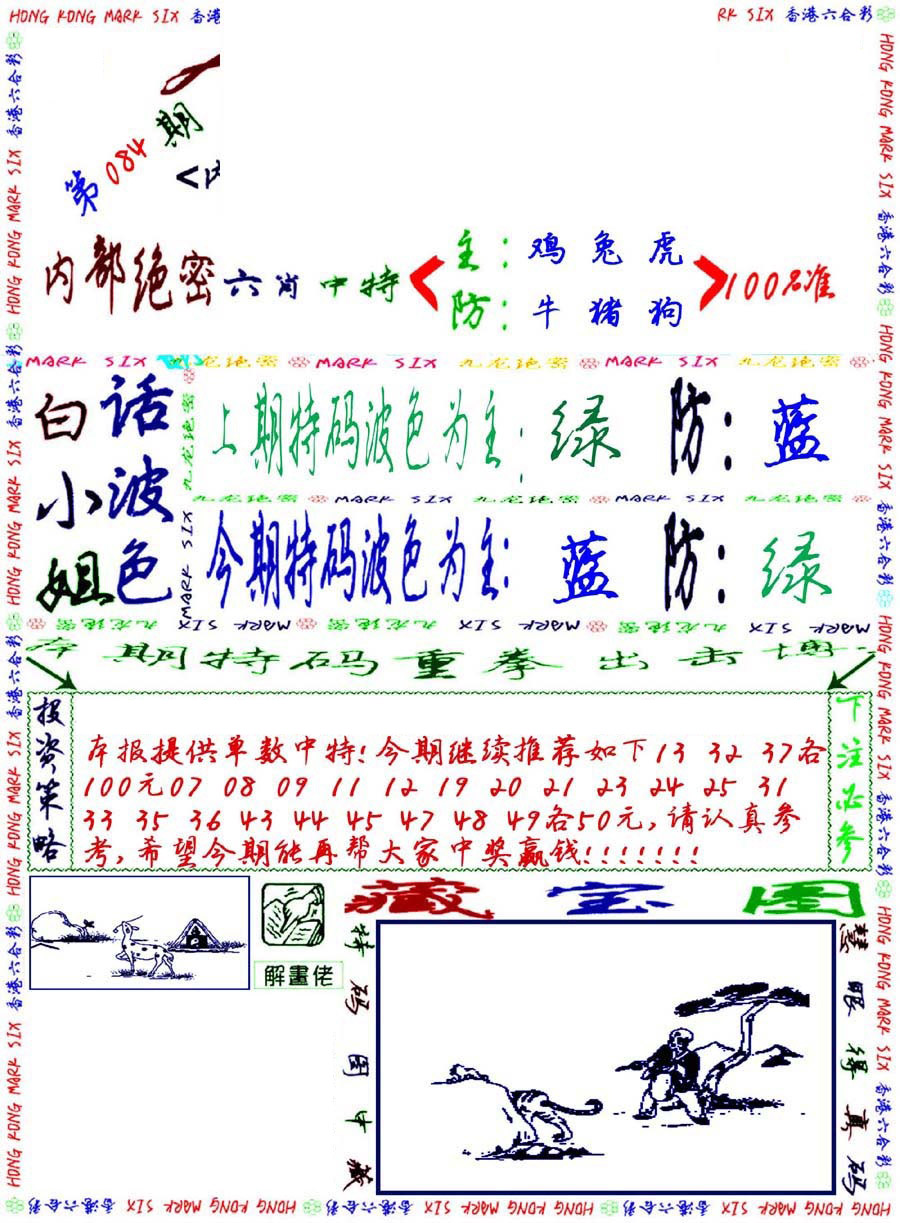 HONG KONG MARK SIX 香港
RK SIX 香港六合彩
第084期
内部绝密六肖中特
主：鸡兔虎
防：牛猪狗
100%准
MARK SIX 九龙绝密 MARK SIX 九龙绝密 MARK SIX 九龙绝密
白话
小波
姐色
上期特码波色为主：绿 防：蓝
九龙绝密 MARK SIX 九龙绝密 MARK SIX 九龙绝密
今期特码波色为主：蓝 防：绿
九龙绝密 MARK SIX 九龙绝密 MARK SIX 九龙绝密 MARK SIX
本期特码重拳出击
投资策略
本报提供单数中特！今期继续推荐如下13 32 37各
100元07 08 09 11 12 19 20 21 23 24 25 31
33 35 36 43 44 45 47 48 49各50元，请认真参
考，希望今期能再帮大家中奖赢钱！！！！！！！
下注必参
解畫佬
藏宝图
特码图中藏
慧眼得真码
HONG KONG MARK SIX 香港六合彩 HONG KONG MARK SIX 香港六合彩 HONG KONG MARK SIX 香港六合彩 HONG KONG MARK SIX 香港六合彩